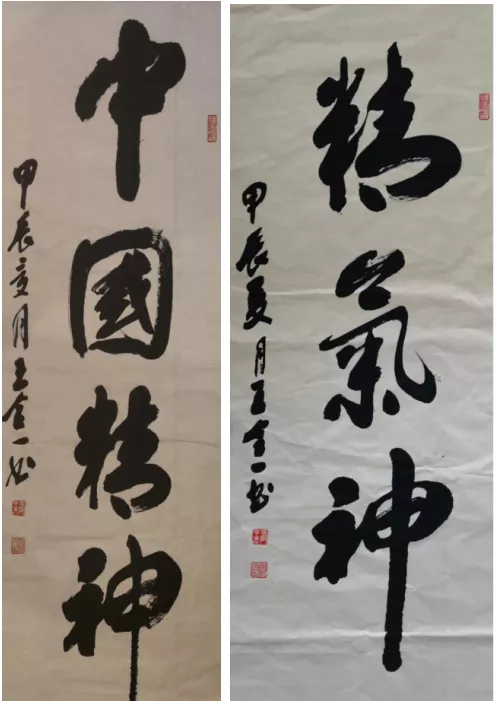 中國精神
甲辰夏月王金一书
精氣神
甲辰夏月王金一书